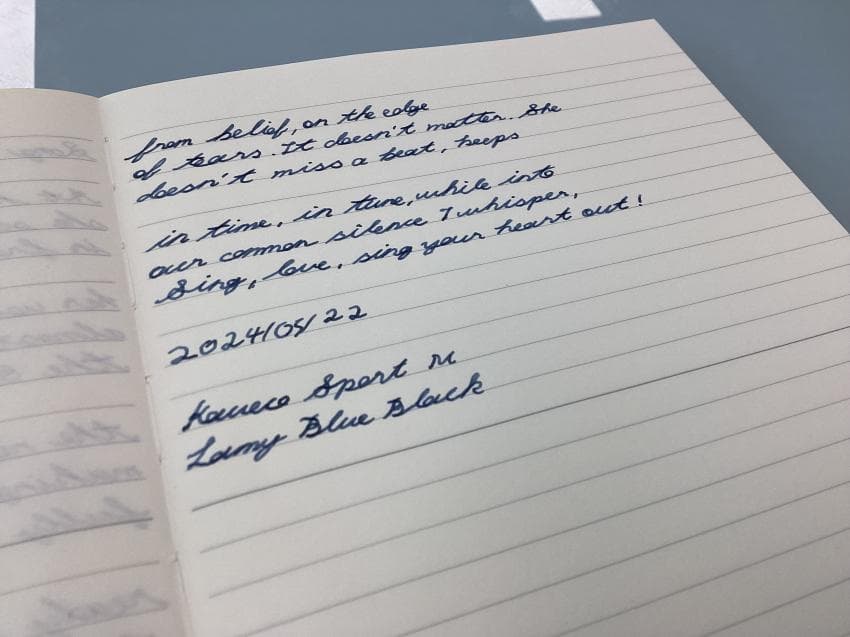 from belief, on the edge
of tears. It doesn't matter. She
doesn't miss a beat, keeps
in time, in tune, while into
our common silence I whisper,
Sing, love, sing your heart out!
2024/05/22
Kaweco Sport M
Lamy Blue Black